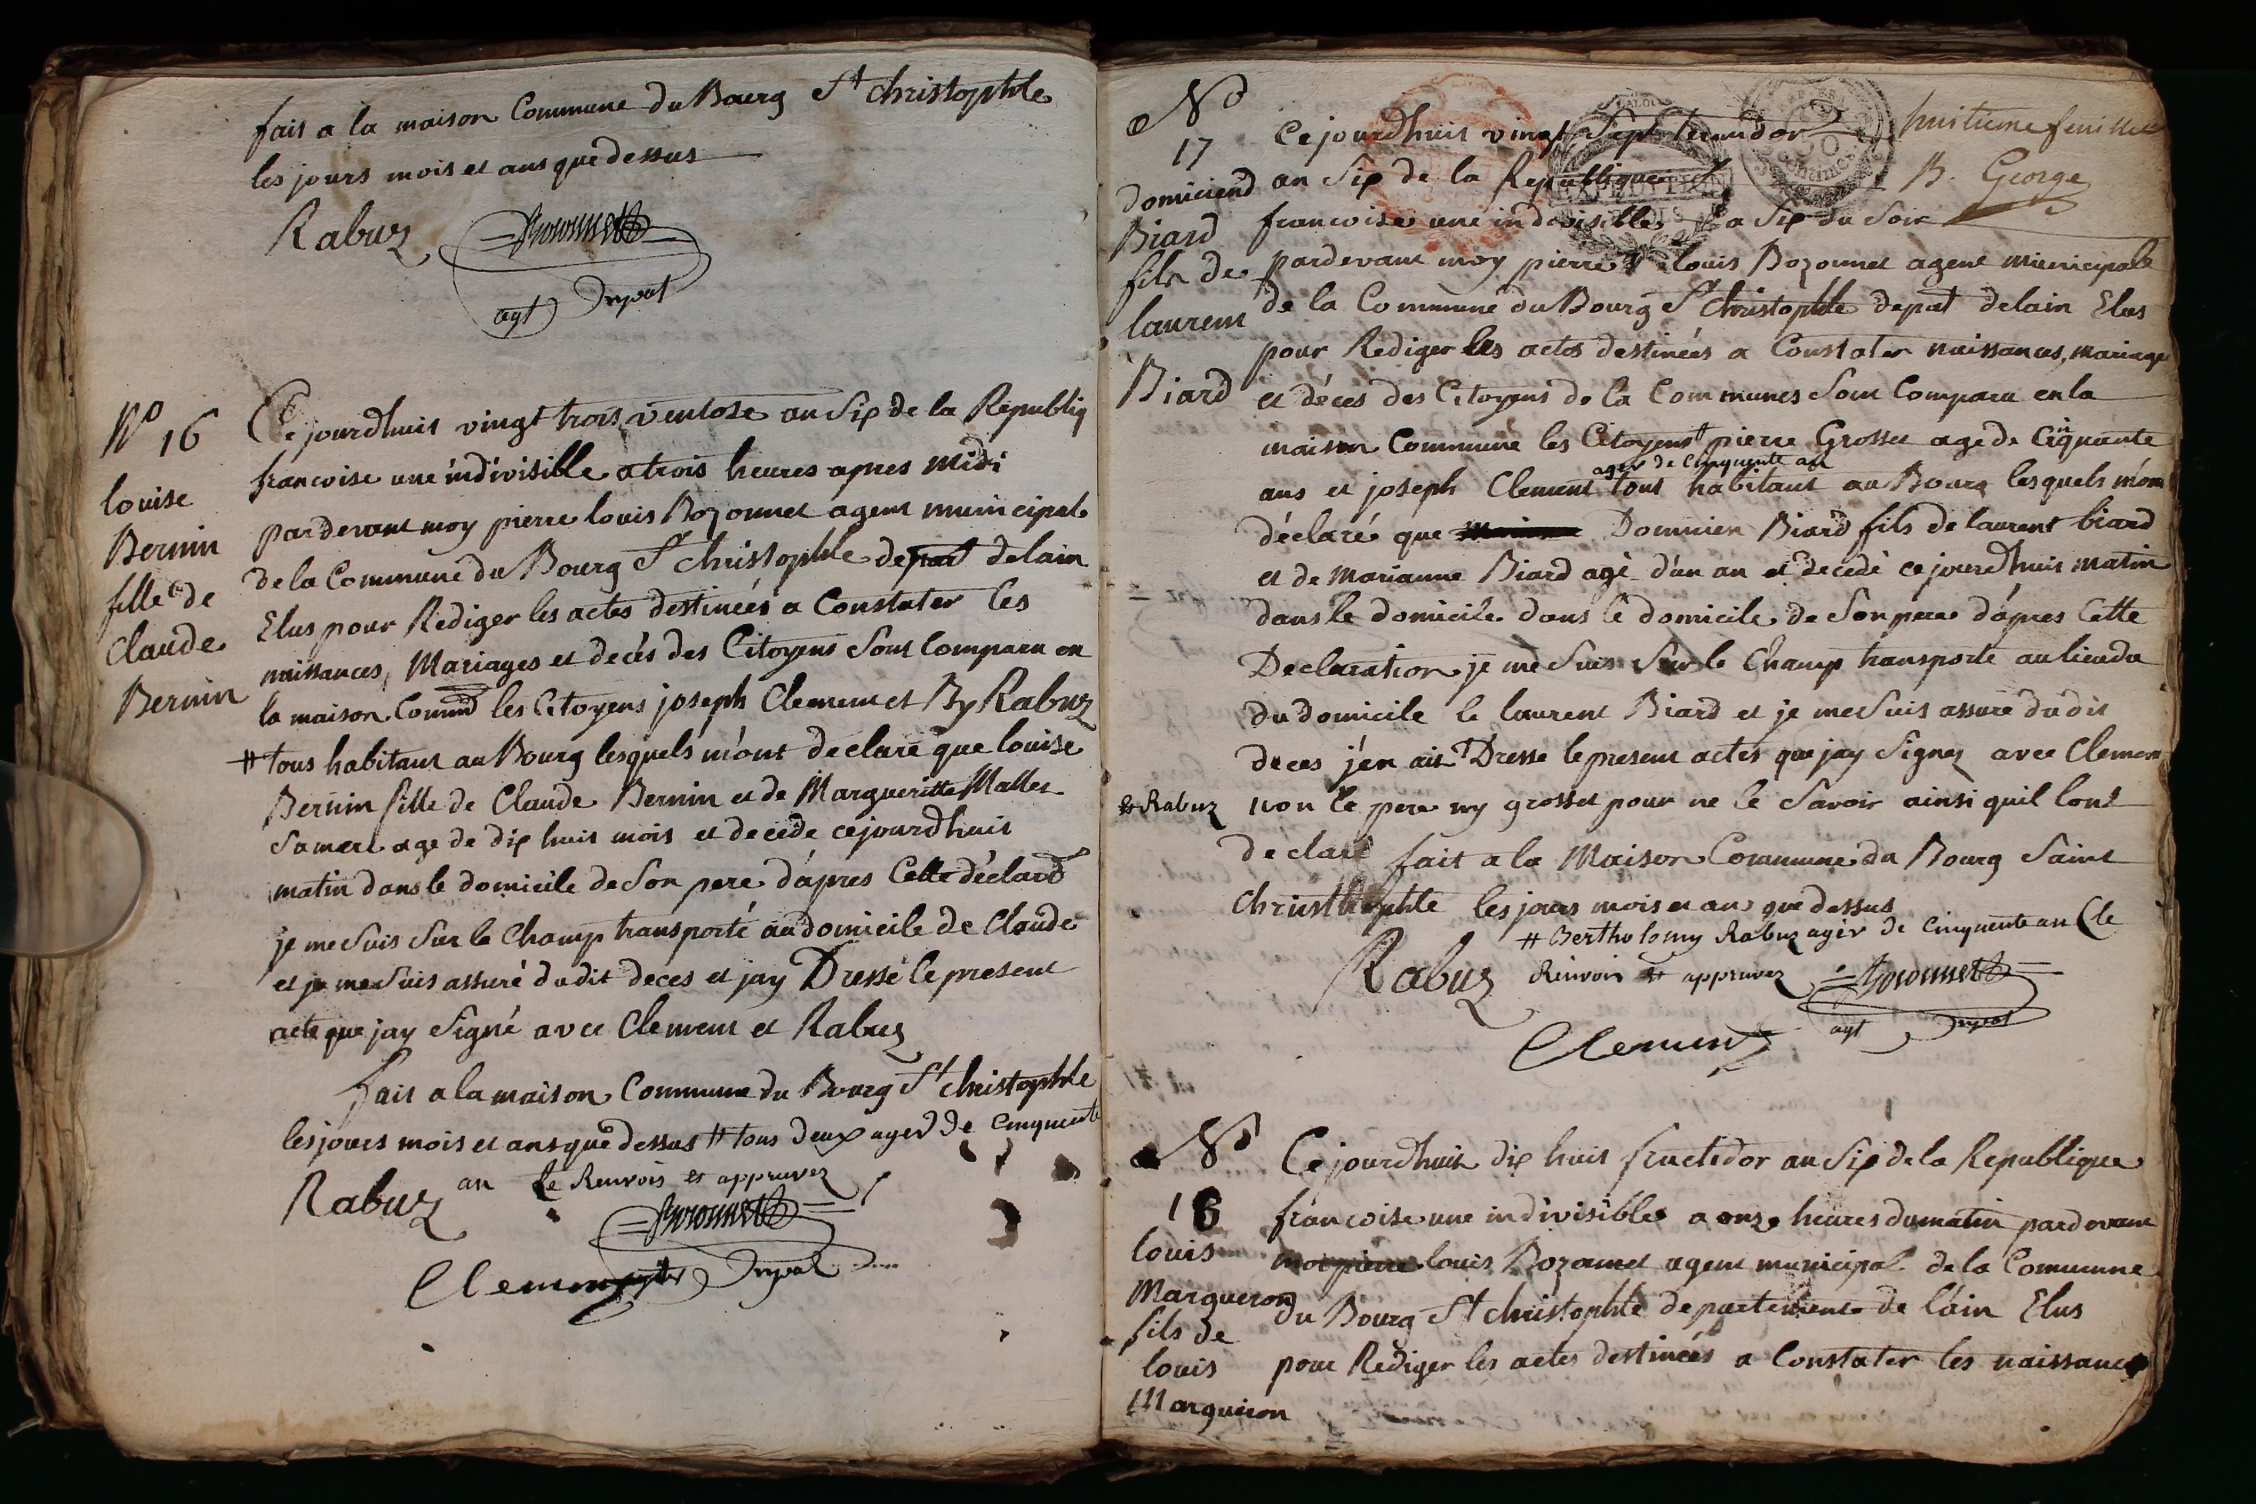 fait a la maison Commune du Bourg St christophle
les jours mois et ans que dessus
Rabuz
Bozonnet
agt
No 16
louise
Bernin
fille de
Claude
Bernin
Ce jourdhuit vingt trois ventose an Six de la Republiq
francoise une indivisible a trois heures apres midi
pardevant moy pierre louis Bozonnet agent municipal
de la Commune du Bourg St christophle depat delain
Elus pour Rediger les actes destineés a Constater les
naissances, Mariages et decés des Citoyens Sont Comparu en
la maison Comme les Citoyens joseph Clement et By Rabuz
# tous habitant au Bourg lesquels m'ont declaré que louise
Bernin fille de Claude Bernin et de Margueritte Mallet
Sa mere age de dix huit mois et decede cejourdhuit
matin dans le domicile de Son pere d'apres Cette déclaron
je me Suis Sur le Champ transporté au domicile de Claude
et je me Suis assuré dudit deces et jay Dressé le present
acte que jay Signé avec Clement et Rabuz
fait a la maison Commune du Bourg St christophle
les jours mois et ans que dessus # tous deux ager de Cinquente
an le Renvois et appruvez
Rabuz
Bozonnet
Clement
huitieme feuillet
B. George
No
17
Domicien
Biard
fils de
laurent
Biard
Ce jourdhuit vingt Sept
an Six de la Republique
francoise une indivisible a Six du Soir
pardevant moy pierre louis Bozonnet agent municipale
de la Commune du Bourg St Christophle depat delain Elus
pour Rediger les actes destinées a Constater naissances, mariage
et déces des Citoyens de la Communes Sont Comparu en la
maison Commune les Citoyens # pierre Grosset age de Cinquante
ager de Cinquente an
ans et joseph Clement tous habitant au Bourg lesquels m'ont
déclaré que Domicien Biard fils de laurent biard
et de Marianne Biard agé d'un an et decedé ce jourdhuit matin
dans le domicile dans le domicile de Son pere d'apres Cette
Declaration je me Suis Sur le Champ transporté au lieu du
du domicile le laurent Biard et je me Suis assuré du dit
deces j'en ait Dressé le present actes que jay Signez avec Clement
& Rabuz
non le pere ny grosset pour ne le Savoir ainsi quil lont
declaré fait a la Maison Commune du Bourg Saint
Christhophle les jours mois et an que dessus
# Bertholomy Rabuz ager de Cinquente an Cle
Renvois et appruvez
Rabuz
Bozonnet
agt
Clement
No
18
louis
Margueron
fils de
louis
Margueron
Ce jourdhuit dix huit fructidor an Six de la Republique
francoise une indivisible a onze heures du matin pardevant
moi pierre louis Bozonnet agent municipal de la Commune
du Bourg St christophle departement de lain Elus
pour Rediger les actes destineés a Constater les naissances